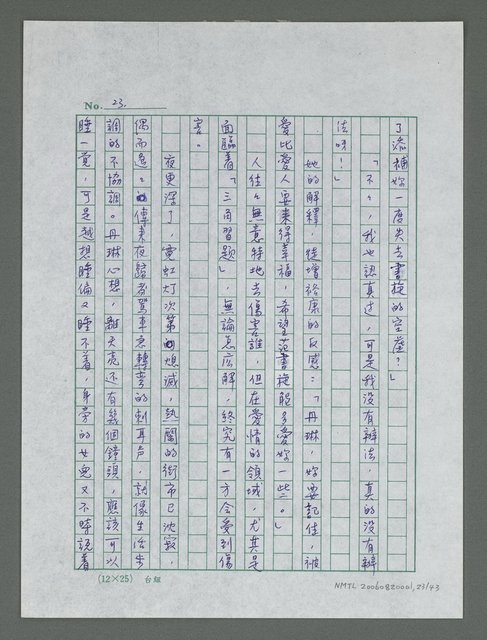 No. 23.
了添補妳一度失去書旋的空虛?」
「不々,我也認真过,可是我沒有辦法,真的沒有辦
法呀!」
她的解釋,徒增裕康的反感:「丹琳,妳要記住,被
愛比愛人要來得幸福,希望范書旋能多愛妳一些。」
人往々無意特地去傷害誰,但在愛情的領域,尤其是
面臨着「三角習題」,無論怎麼解,終究有一方会受到傷
害。
夜更深了,霓虹灯次第熄滅,熱鬧的街市已沈寂,
偶而急々傳來夜歸者駕車急轉弯的刺耳声,就像生活步
調的不協調。丹琳心想,離天亮还有幾個鐘頭,應該可以
睡一覚,可是越想睡偏又睡不着,身旁的女兒又不時説着
(12×25) 台組
NMTL 20060820001, 23/43